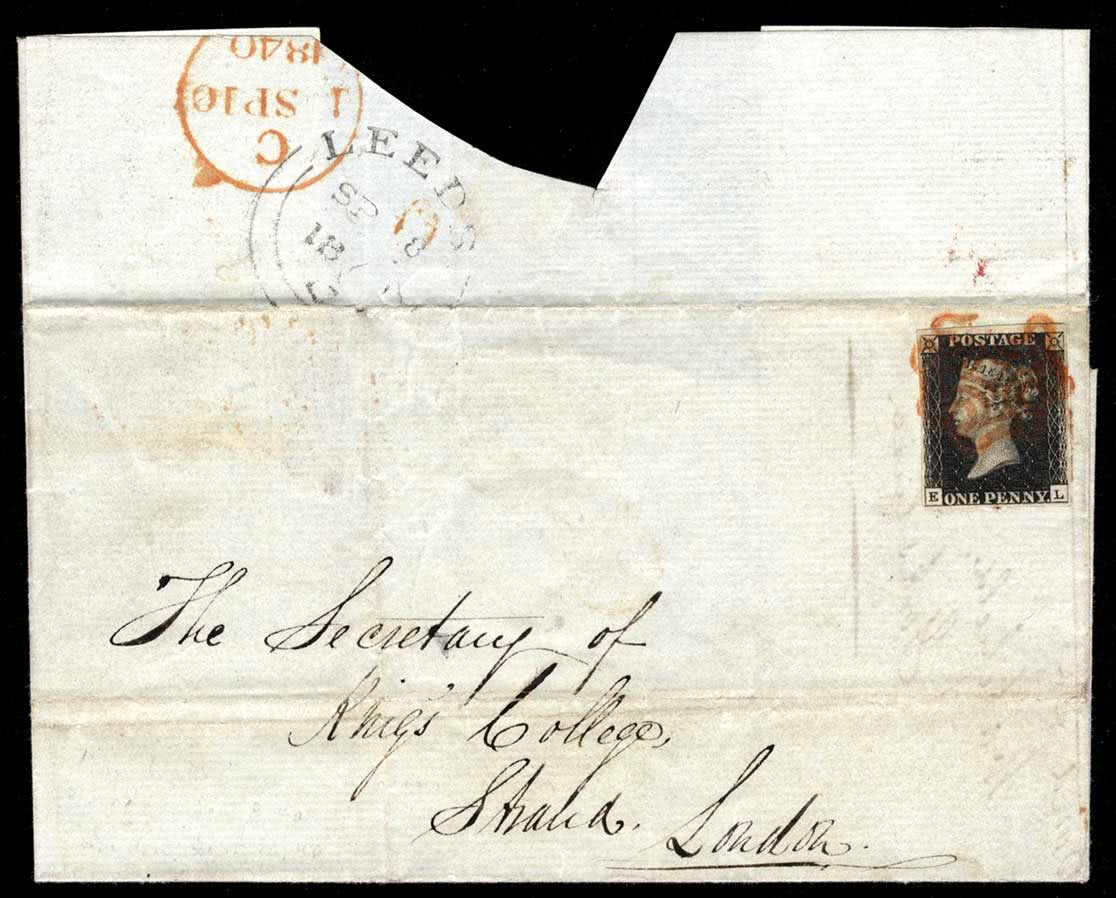 1840
1 SP 10
C
LEEDS
SP 8
18
POSTAGE
E ONE PENNY. L
The Secretary of
King's College,
Strand. London.